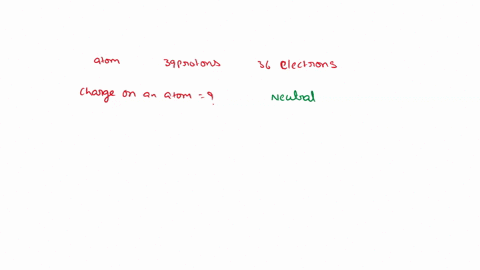 atom 39protons 36 electrons
charge on an atom = ? Neutral